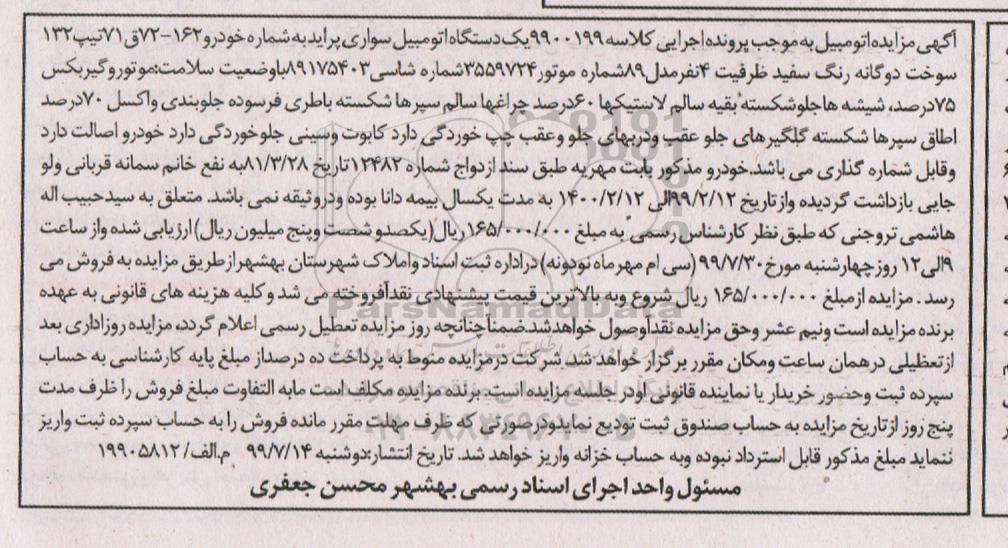 آگهی مزایده اتومبیل به موجب پرونده اجرایی کلاسه ۹۹۰۰۱۹۹ یک دستگاه اتومبیل سواری پراید به شماره خودرو ۱۶۲-۷۲ق۷۱ تیپ ۱۳۲
سوخت دوگانه رنگ سفید ظرفیت ۴نفر مدل ۸۹ شماره موتور ۳۵۵۹۷۲۴ شماره شاسی ۸۹۱۷۵۴۰۳ باوضعیت سلامت: موتور و گیربکس
۷۵درصد، شیشه ها جلو شکسته بقیه سالم لاستیکها ۶۰درصد چراغها سالم سپرها شکسته باطری فرسوده جلوبندی واکسل ۷۰درصد
اطاق سپرها شکسته گلگیرهای جلو عقب ودربهای جلو وعقب چپ خوردگی دارد کاپوت وسینی جلو خوردگی دارد خودرو اصالت دارد
وقابل شماره گذاری می باشد. خودرو مذکور بابت مهریه طبق سند ازدواج شماره ۱۲۴۸۲ تاریخ ۸۱/۳/۲۸ به نفع خانم سمانه قربانی ولو
جایی بازداشت گردیده واز تاریخ ۹۹/۲/۱۲ الی ۱۴۰۰/۲/۱۲ به مدت یکسال بیمه دانا بوده ودر وثیقه نمی باشد. متعلق به سید حبیب اله
هاشمی تروجنی که طبق نظر کارشناس رسمی به مبلغ ۱۶۵/۰۰۰/۰۰۰ ریال(یکصدو شصت وپنج میلیون ریال) ارزیابی شده واز ساعت
۹الی ۱۲ روز چهارشنبه مورخ ۹۹/۷/۳۰ (سی ام مهر ماه نودونه) در اداره ثبت اسناد واملاک شهرستان بهشهر از طریق مزایده به فروش می
رسد. مزایده از مبلغ ۱۶۵/۰۰۰/۰۰۰ ریال شروع وبه بالاترین قیمت پیشنهادی نقدآفروخته می شد وکلیه هزینه های قانونی به عهده
برنده مزایده است ونیم عشر وحق مزایده نقدآوصول خواهدشد. ضمناً چنانچه روز مزایده تعطیل رسمی اعلام گردد، مزایده روز اداری بعد
از تعطیلی در همان ساعت ومکان مقرر برگزار خواهد شد. شرکت در مزایده منوط به پرداخت ده درصد از مبلغ پایه کارشناسی به حساب
سپرده ثبت وحضور خریدار یا نماینده قانونی او در جلسه مزایده است. برنده مزایده مکلف است مابه التفاوت مبلغ فروش را ظرف مدت
پنج روز از تاریخ مزایده به حساب صندوق ثبت تودیع نماید ودر صورتی که ظرف مهلت مقرر مانده فروش را به حساب سپرده ثبت واریز
ننماید مبلغ مذکور قابل استرداد نبوده وبه حساب خزانه واریز خواهد شد. تاریخ انتشار: دوشنبه ۹۹/۷/۱۴ م.الف/ ۱۹۹۰۵۸۱۲
مسئول واحد اجرای اسناد رسمی بهشهر محسن جعفری
ParsNamadData